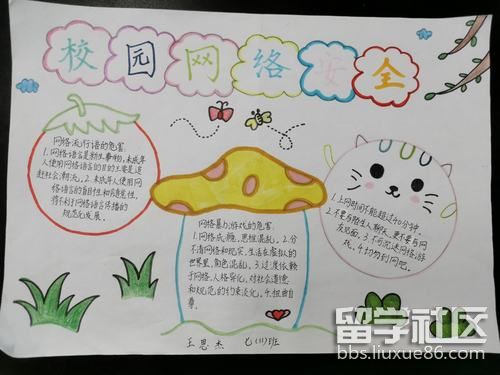 校园网络安全
网络流行语的危害
1. 网络语言是新生事物,未成年
人使用网络语言的目的主要是追
赶社会潮流。2. 未成年人使用网
络语言的盲目性和随意性,
将不利于网络语言传播的
规范化发展。
网络暴力游戏的危害
1. 网络成瘾,思维混乱。2. 分
不清网络和现实,生活在虚拟人的
世界里,角色混乱。3. 过度依赖
于网络,人格异化,对社会道德
和规范的约束淡化。4. 扭曲
自尊。
1. 上网时间不能超过40分钟。
2. 不要与陌生人聊天,更不要与网
友见面。3. 不可沉迷网络游
戏。4. 切勿到网吧。
王思杰 七(11)班
留学社区
bbs.liuxue86.com